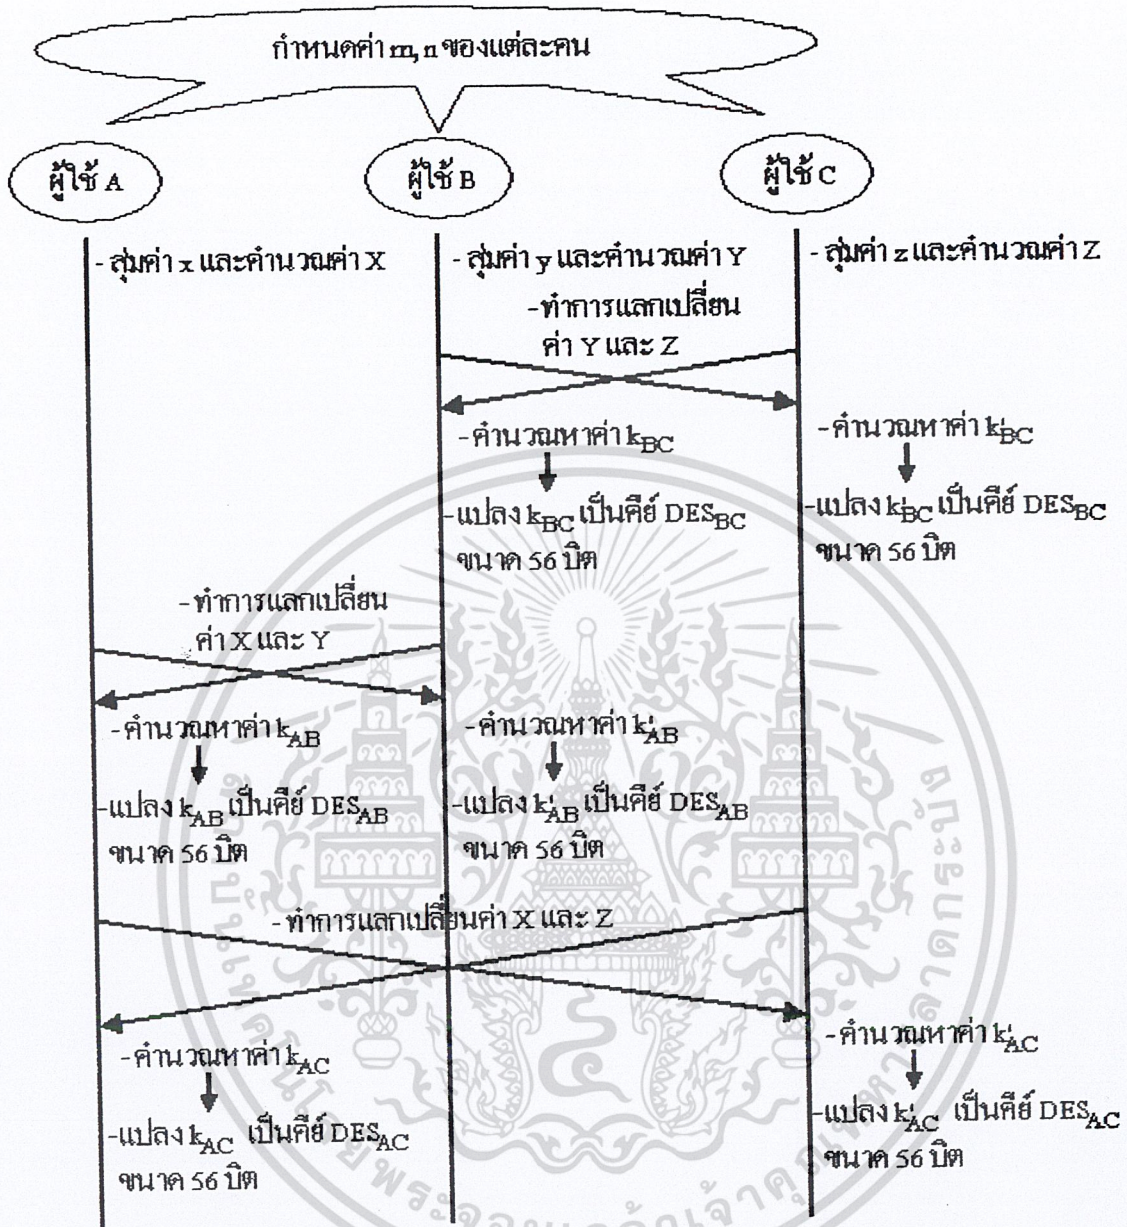 กำหนดค่า m, n ของแต่ละคน
ผู้ใช้ A
ผู้ใช้ B
ผู้ใช้ C
- สุ่มค่า x และคำนวณค่า X
- สุ่มค่า y และคำนวณค่า Y
- สุ่มค่า z และคำนวณค่า Z
-ทำการแลกเปลี่ยน
ค่า Y และ Z
-คำนวณหาค่า k_BC
-คำนวณหาค่า k'_BC
-แปลง k_BC เป็นคีย์ DES_BC
ขนาด 56 บิต
-แปลง k'_BC เป็นคีย์ DES_BC
ขนาด 56 บิต
-ทำการแลกเปลี่ยน
ค่า X และ Y
-คำนวณหาค่า k_AB
-คำนวณหาค่า k'_AB
-แปลง k_AB เป็นคีย์ DES_AB
ขนาด 56 บิต
-แปลง k'_AB เป็นคีย์ DES_AB
ขนาด 56 บิต
-ทำการแลกเปลี่ยนค่า X และ Z
-คำนวณหาค่า k_AC
-คำนวณหาค่า k'_AC
-แปลง k_AC เป็นคีย์ DES_AC
ขนาด 56 บิต
-แปลง k'_AC เป็นคีย์ DES_AC
ขนาด 56 บิต